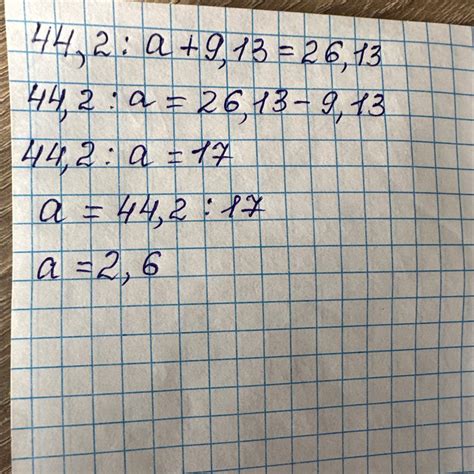 44,2 : a + 9,13 = 26,13
44,2 : a = 26,13 - 9,13
44,2 : a = 17
a = 44,2 : 17
a = 2,6